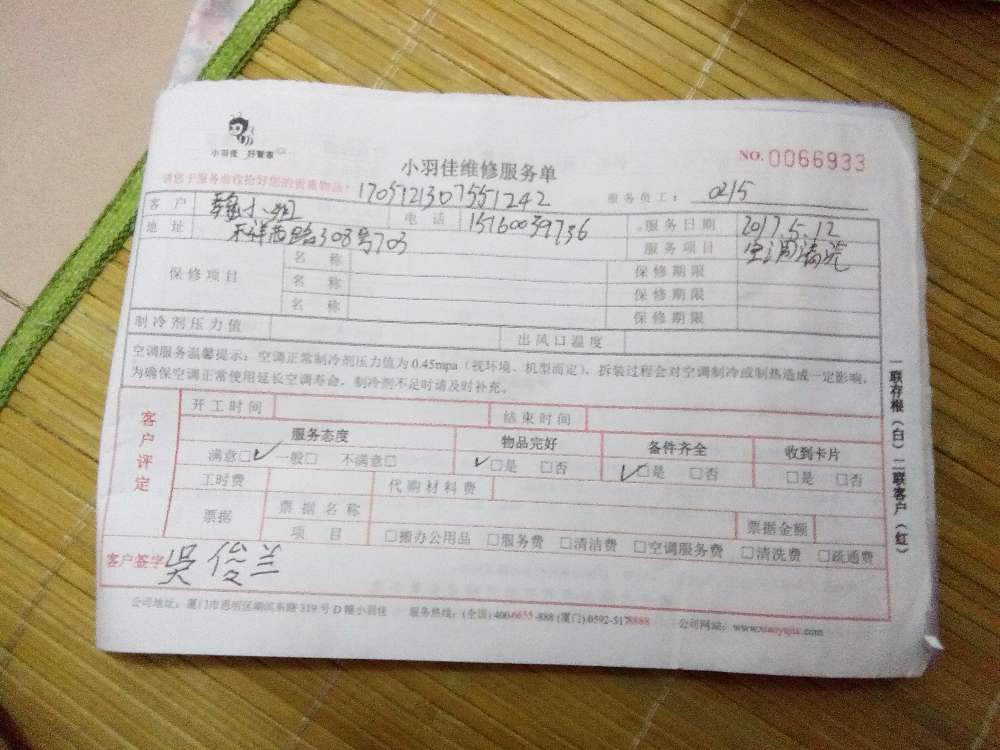 小羽佳 好管家
小羽佳维修服务单
NO. 0066933
请您于服务前收拾好您的贵重物品!
1705121307551242
服务员工: 0215
客户 小姐 电话 15160039736 服务日期 2017.5.12
地址 禾祥西路308号703 服务项目 空调清洗
保修项目 名称 保修期限
名称 保修期限
名称 保修期限
制冷剂压力值 出风口温度
空调服务温馨提示:空调正常制冷剂压力值为0.45mpa(视环境、机型而定)、拆装过程会对空调制冷或制热造成一定影响,
为确保空调正常使用延长空调寿命,制冷剂不足时请及时补充。
客户评定 开工时间 结束时间
服务态度 物品完好 备件齐全 收到卡片
满意□✓ 一般□ 不满意□ ✓□是 □否 ✓□是 □否 □是 □否
工时费 代购材料费
票据 票据名称 票据金额
项目 □搬办公用品 □服务费 □清洁费 □空调服务费 □清洗费 □疏通费
客户签字 吴俊兰
公司地址:厦门市思明区湖滨东路319号D幢小羽佳 服务热线:(全国)400-6655-888 (厦门)0592-5178888 公司网站:www.xiaoyujia.com
一联存根(白) 二联客户(红)